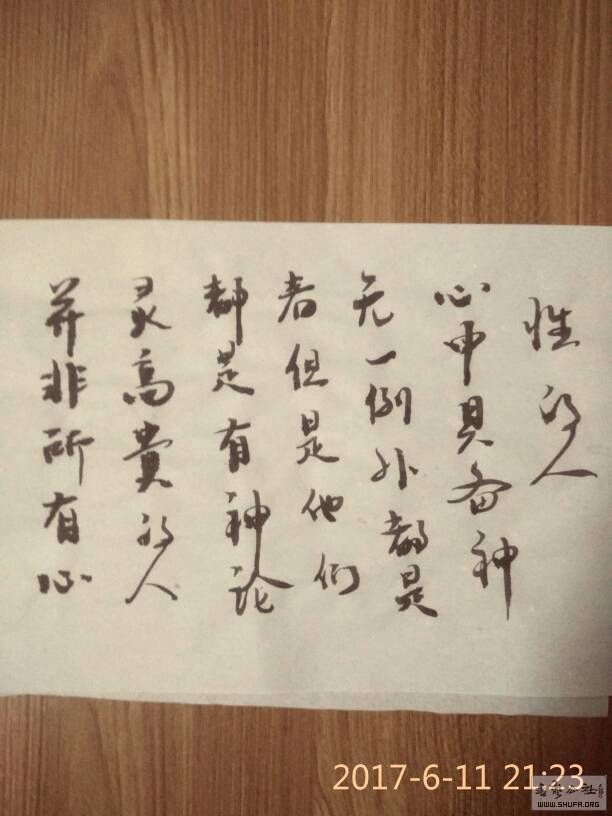 并非所有心
灵高貴的人
都是有神论
者但是他们
无一例外都是
心中具备神
性的人
2017-6-11 21:23
WWW.SHUFA.ORG